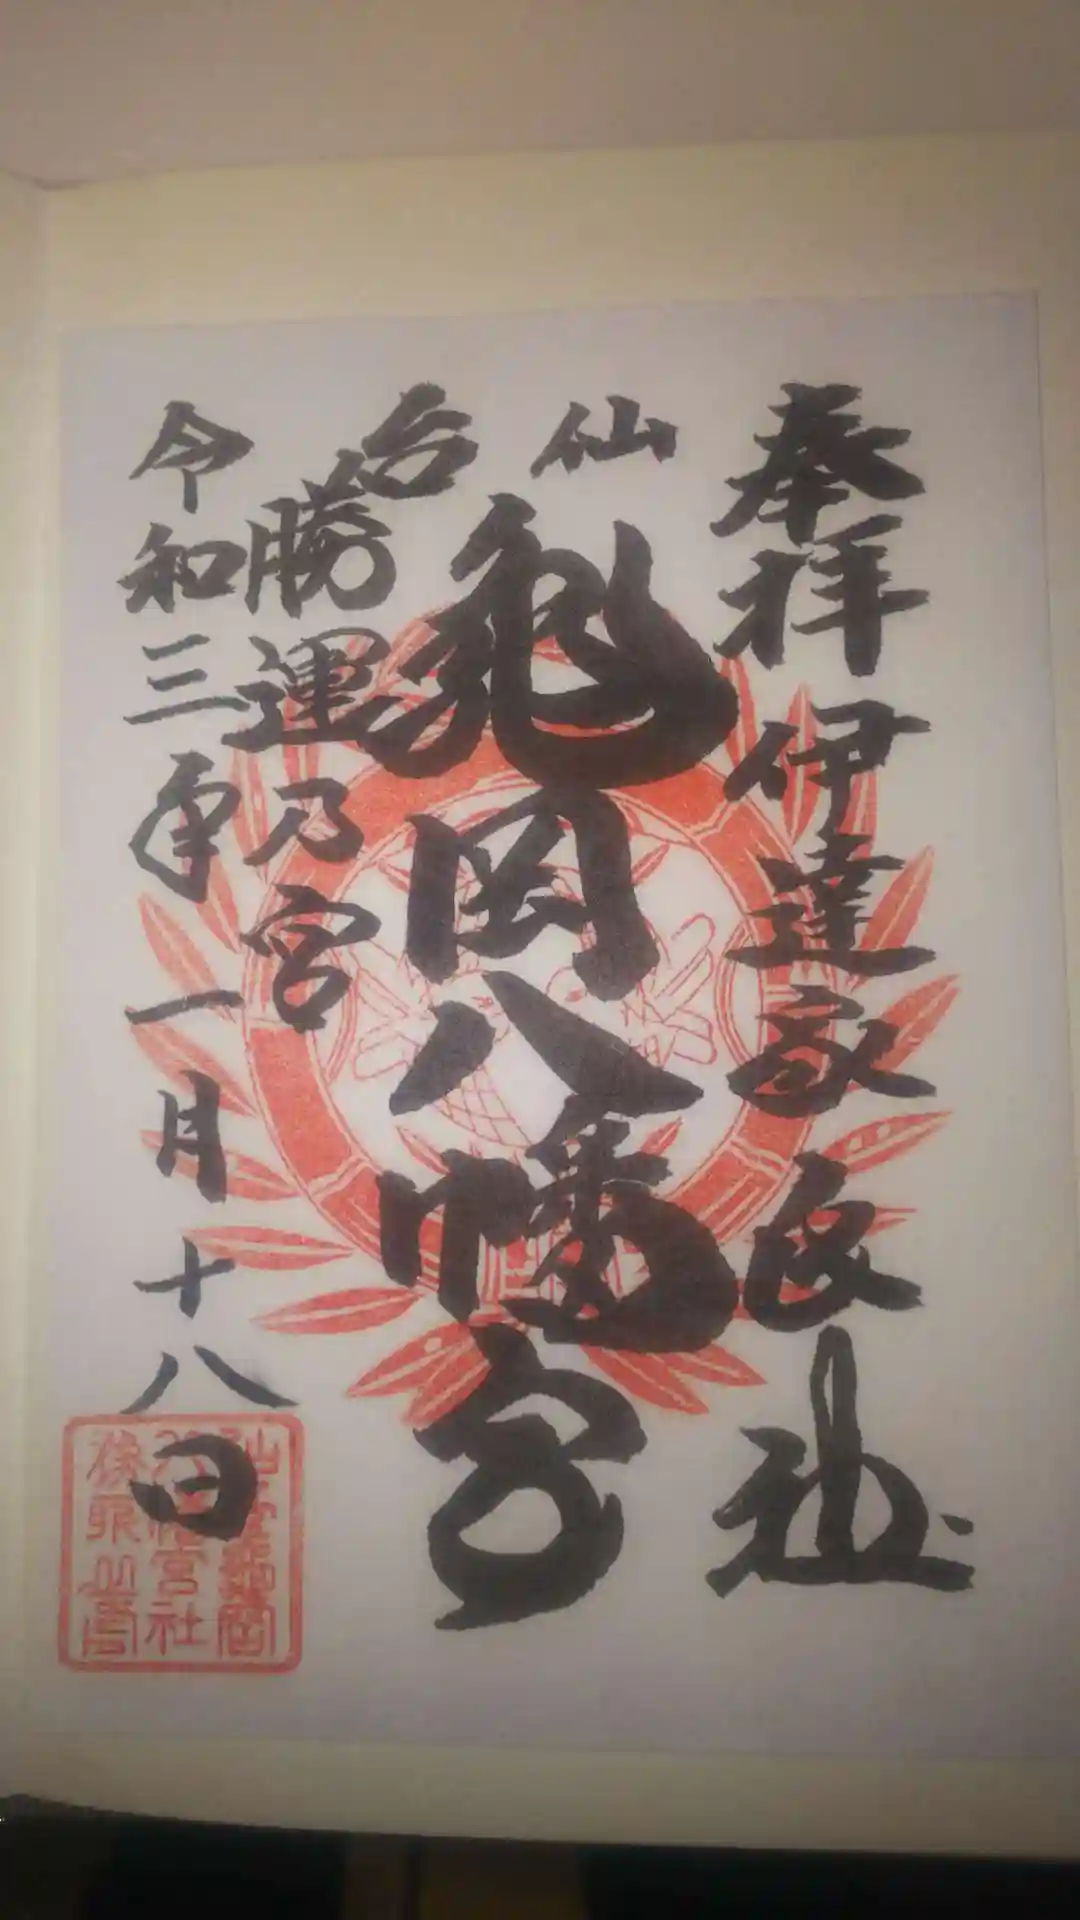 奉拝 伊達家
仙台
亀岡八幡宮
勝運乃宮
令和三年一月十八日
仙臺亀岡
八幡宮社